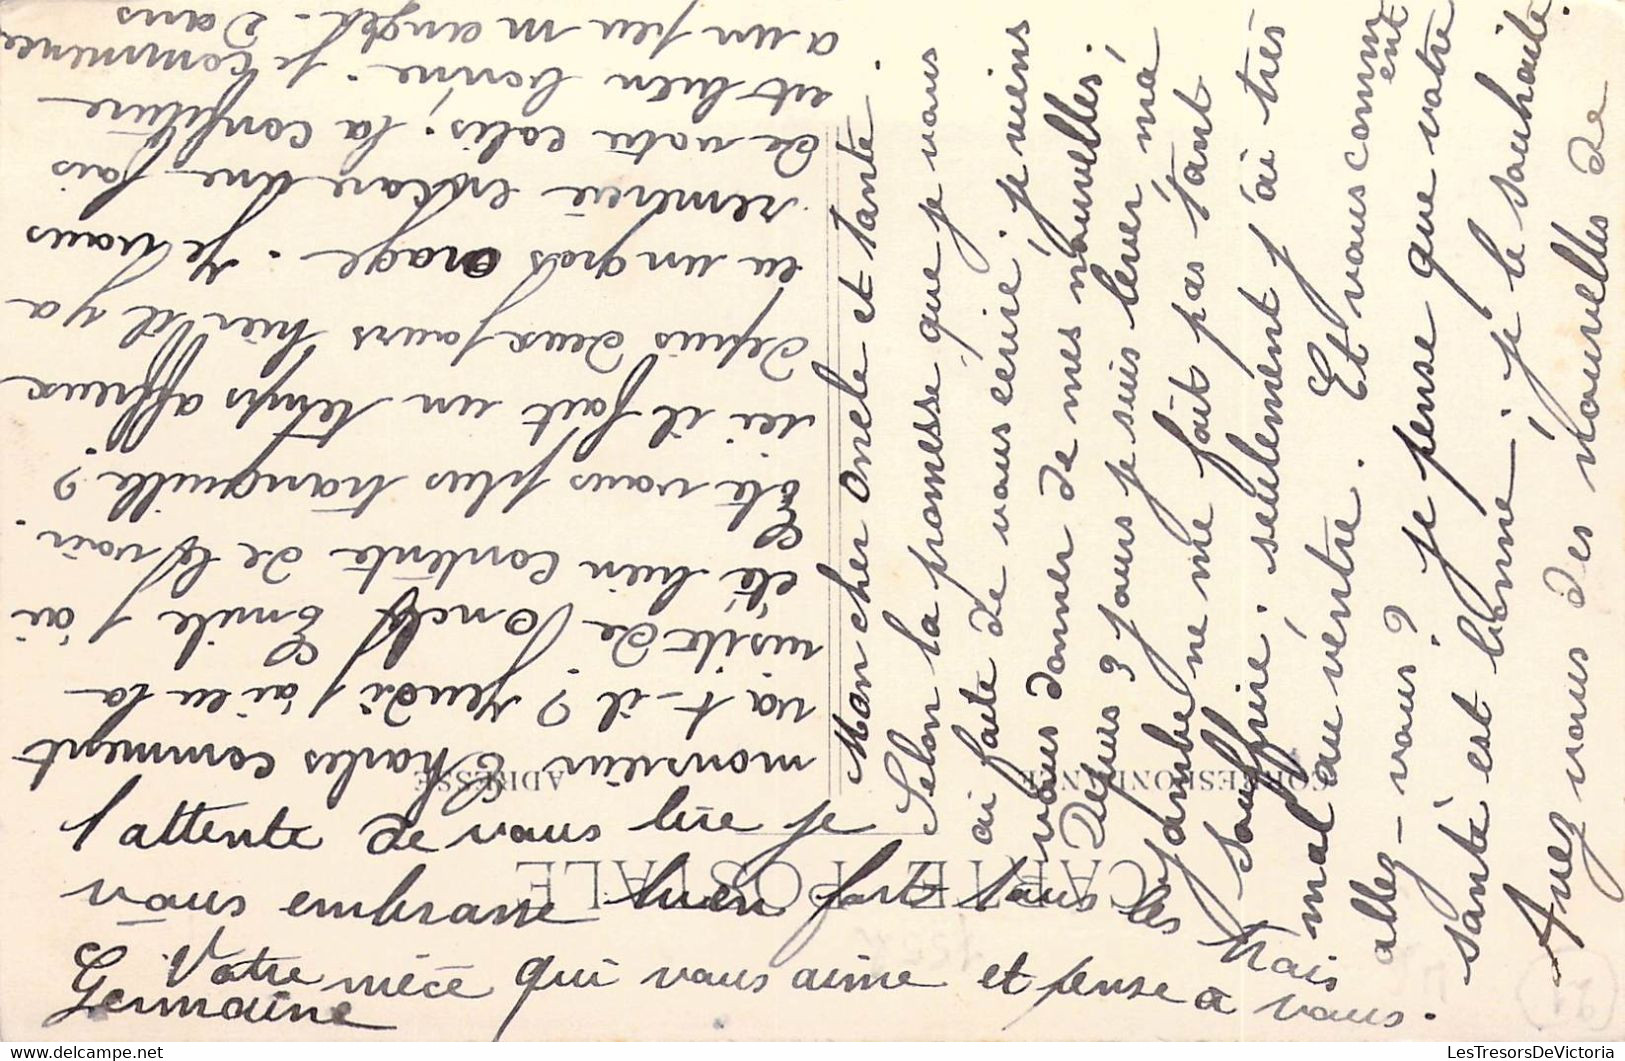 Mon cher Oncle et Tante
Selon la promesse que je vous
ai faite de vous écrire. je viens
vous donner de mes nouvelles;
Depuis 3 jours je suis lever ma
jambe ne me fait pas tant
souffrire. seulement j'ai très
mal au ventre. Et vous comm
ent
allez-vous? je pense que votre
santé est bonne; je le souhaite.
Avez vous des nouvelles de
monsieur Charles comment
va t-il? Jeudi j'ai eu la
visite de l'oncle Emile j'ai
été bien contente de le voir.
été vous plus tranquille?
ici il fait un temps affreux
depuis deux jours hier il y a
eu un gros orage. je vous
remercie encore une fois
de votre colis. la confiture
est bien bonne. je commence
a un peu manger. Dans
l'attente de vous lire je
vous embrasse bien fort tous les
trois
Votre nièce qui vous aime et pense a vous.
Germaine
CARTE POSTALE
CORRESPONDANCE
ADRESSE
LesTresorsDeVictoria